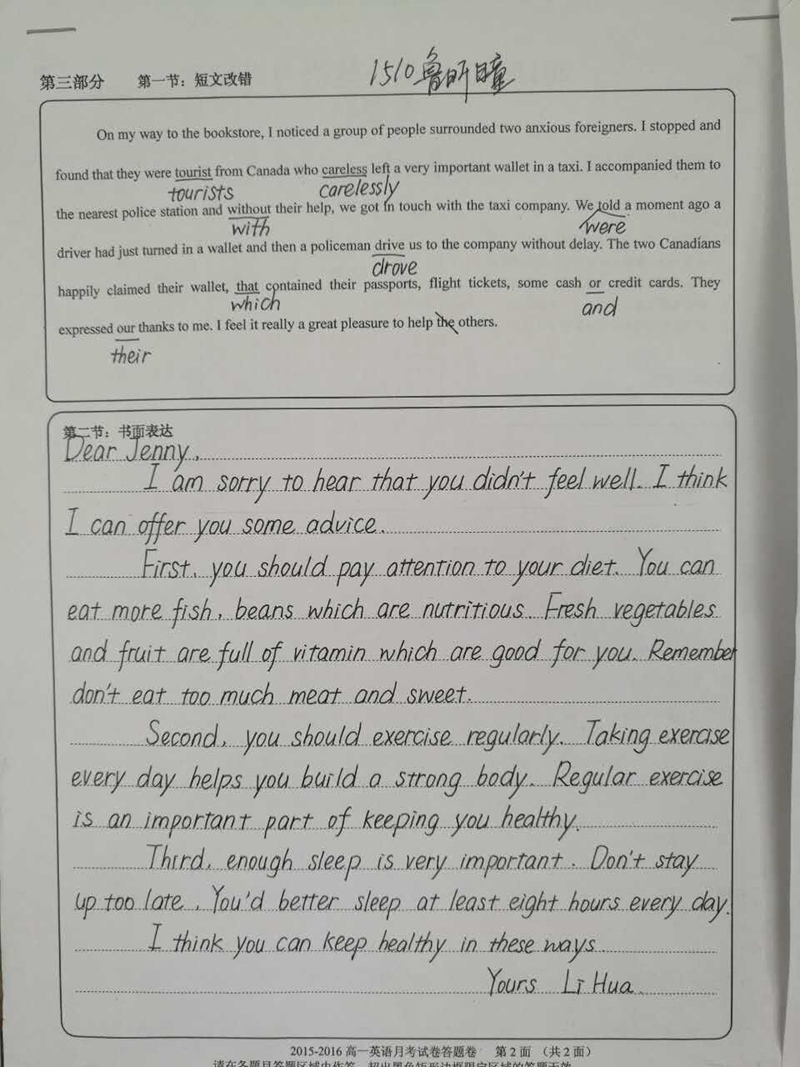 第三部分 第一节：短文改错 1510鲁昕瞳
On my way to the bookstore, I noticed a group of people surrounded two anxious foreigners. I stopped and
found that they were tourist from Canada who careless left a very important wallet in a taxi. I accompanied them to
tourists carelessly
the nearest police station and without their help, we got in touch with the taxi company. We told a moment ago a
with were
driver had just turned in a wallet and then a policeman drive us to the company without delay. The two Canadians
drove
happily claimed their wallet, that contained their passports, flight tickets, some cash or credit cards. They
which and
expressed our thanks to me. I feel it really a great pleasure to help the others.
their
第二节：书面表达
Dear Jenny,
I am sorry to hear that you didn't feel well. I think
I can offer you some advice.
First, you should pay attention to your diet. You can
eat more fish, beans which are nutritious. Fresh vegetables
and fruit are full of vitamin which are good for you. Remember
don't eat too much meat and sweet.
Second, you should exercise regularly. Taking exercise
every day helps you build a strong body. Regular exercise
is an important part of keeping you healthy.
Third, enough sleep is very important. Don't stay
up too late. You'd better sleep at least eight hours every day.
I think you can keep healthy in these ways.
Yours Li Hua.
2015-2016 高一英语月考试卷答题卷 第 2 面 （共 2 面）
请在各题目答题区域内作答，超出黑色矩形边框限定区域的答题无效